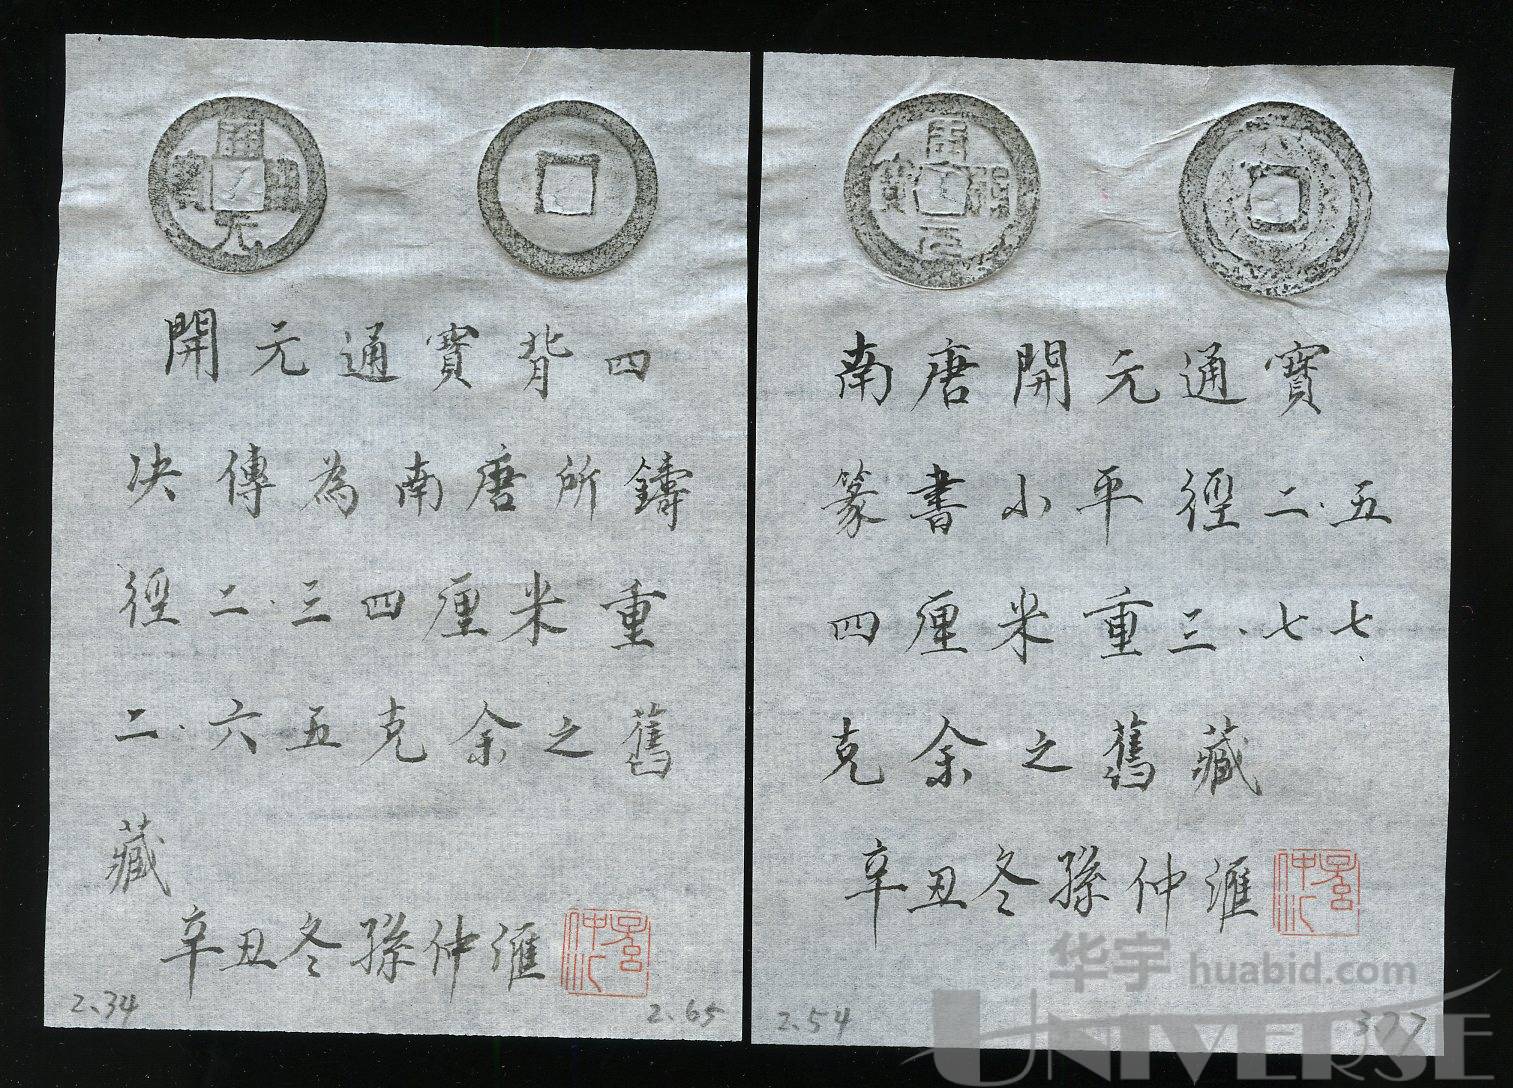 開元通寳
開元通寳背四
决傳為南唐所鑄
徑二.三四厘米重
二.六五克余之舊
藏
辛丑冬孫仲滙
2.34
2.65
開元通寳
南唐開元通寳
篆書小平徑二.五
四厘米重三.七七
克余之舊藏
辛丑冬孫仲滙
2.54
3.77
华宇 huabid.com
UNIVERSE